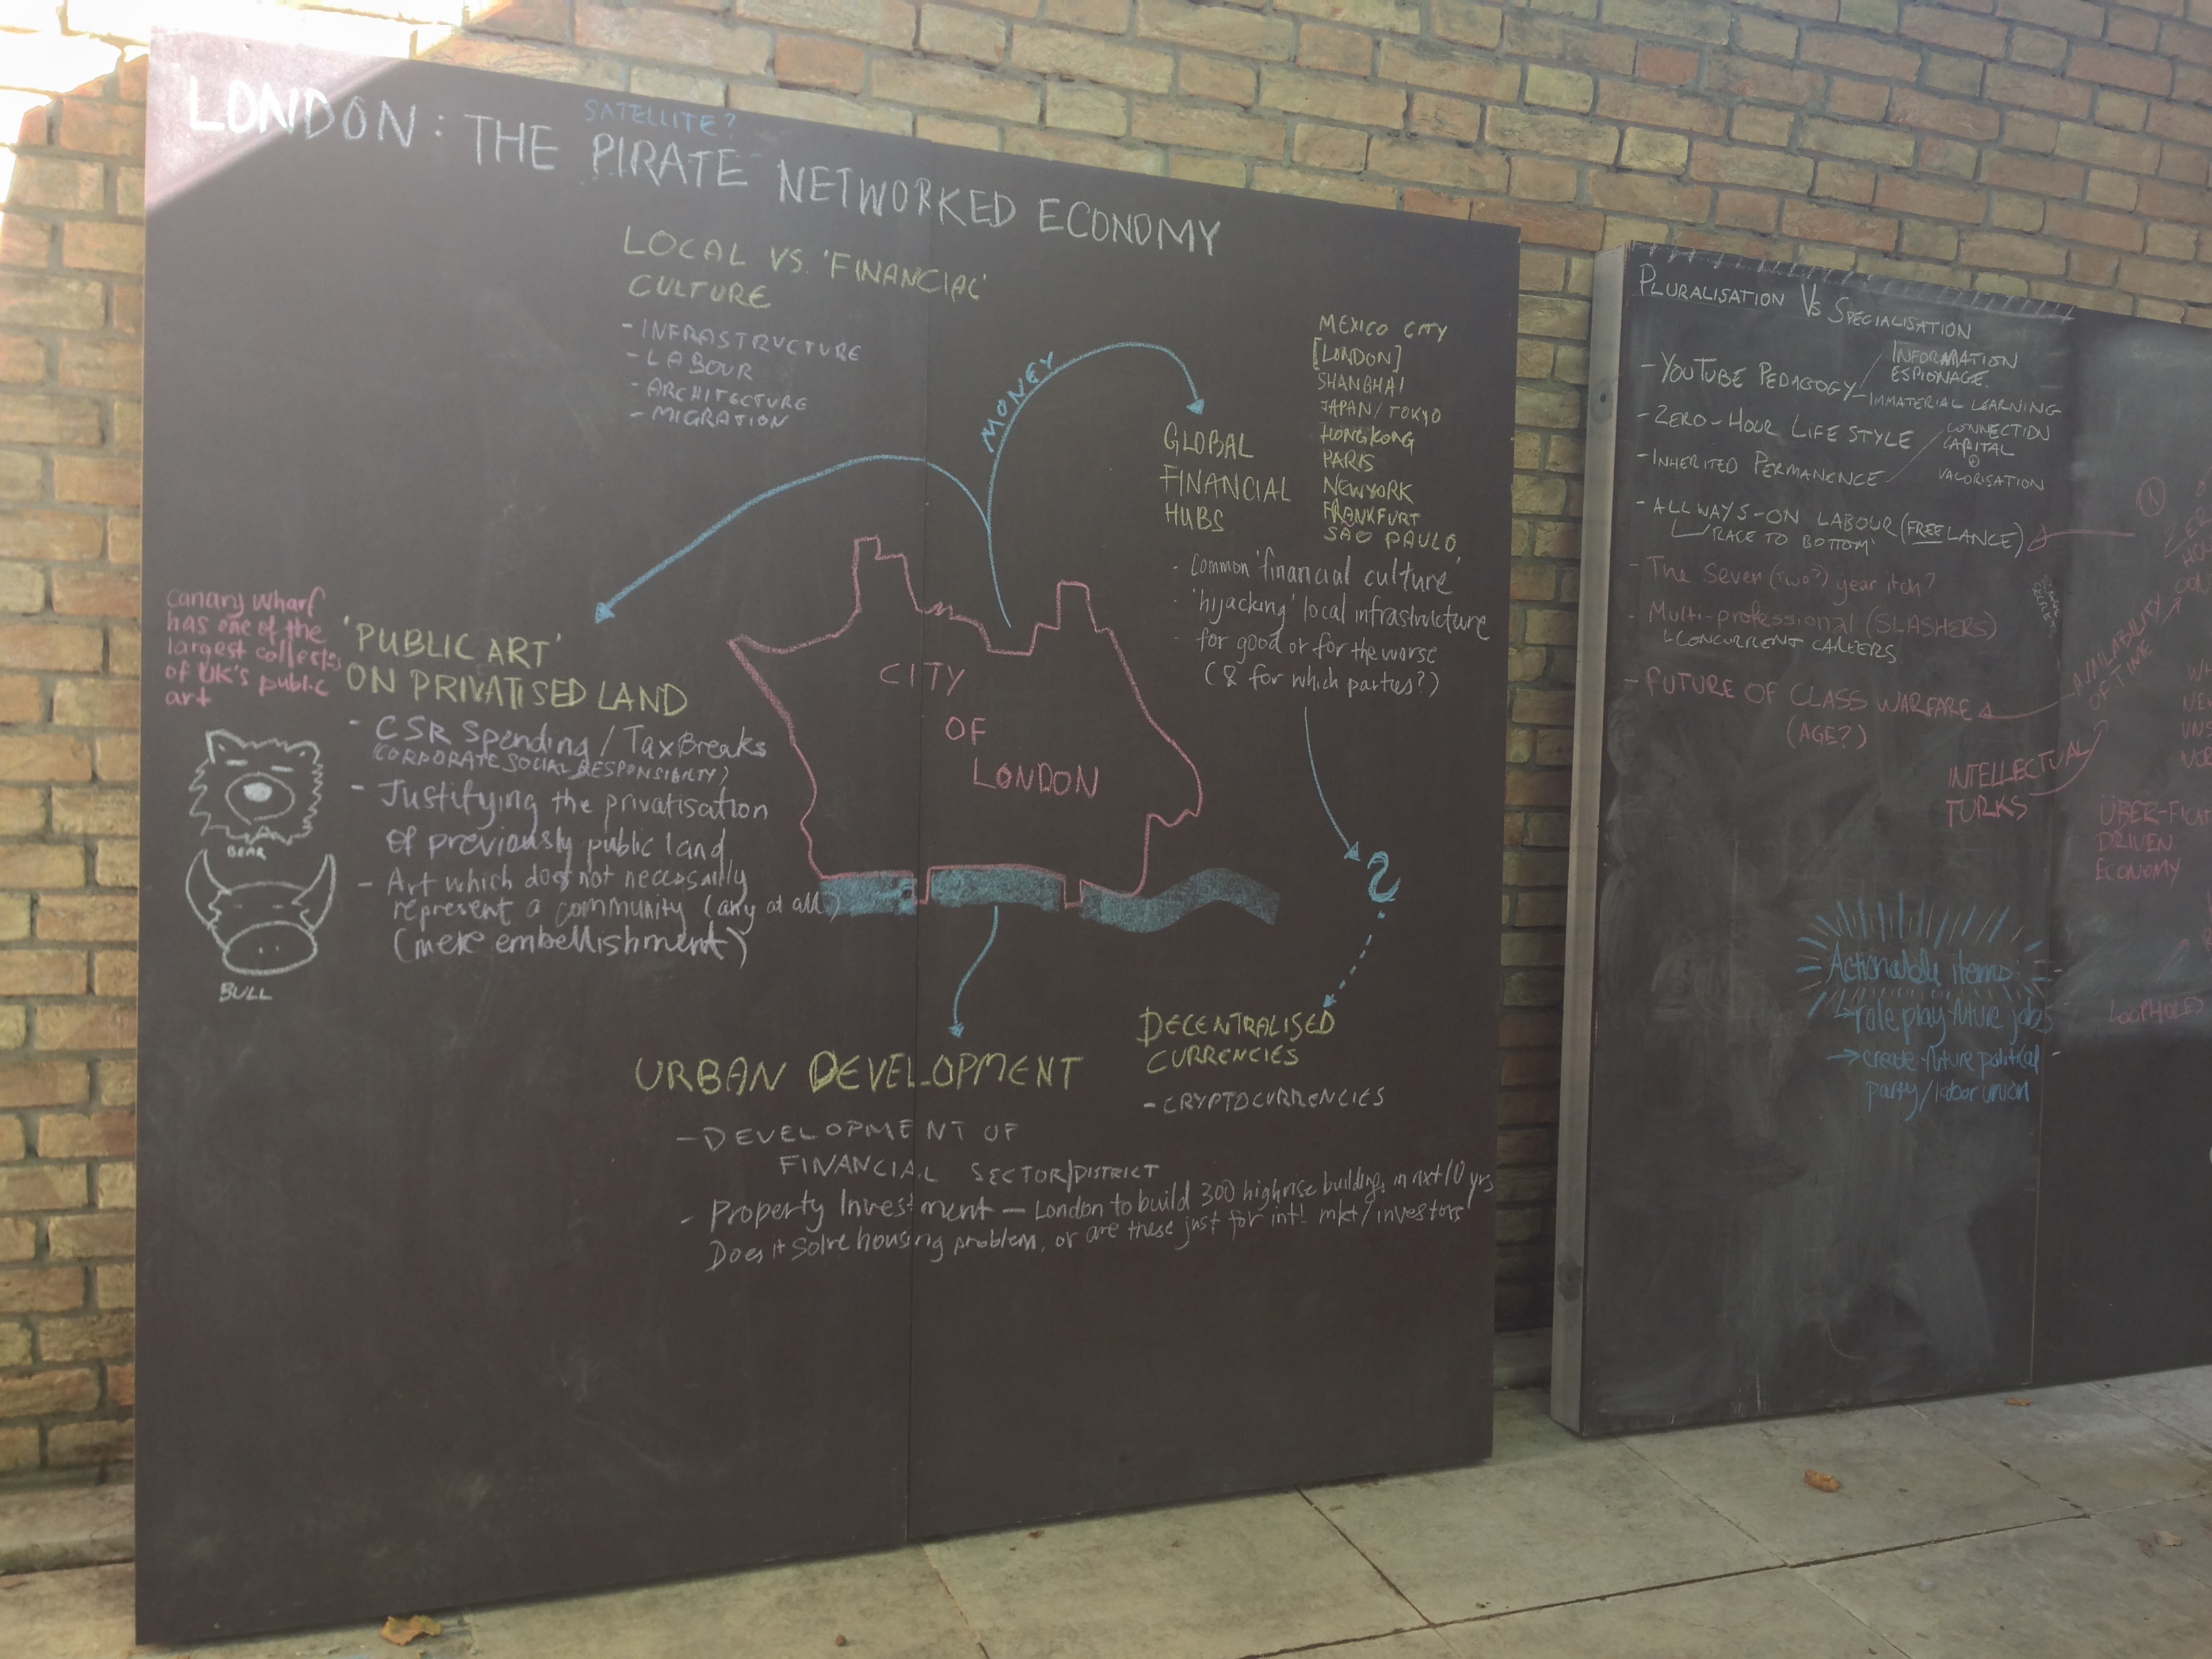 SATELLITE?
LONDON: THE PIRATE NETWORKED ECONOMY
LOCAL VS. 'FINANCIAL'
CULTURE
- INFRASTRUCTURE
- LABOUR
- ARCHITECTURE
- MIGRATION
MONEY
GLOBAL
FINANCIAL
HUBS
MEXICO CITY
[LONDON]
SHANGHAI
JAPAN/TOKYO
HONGKONG
PARIS
NEWYORK
FRANKFURT
SAO PAULO
- common 'financial culture'
- 'hijacking' local infrastructure
- for good or for the worse
(& for which parties?)
CITY
OF
LONDON
Canary Wharf
has one of the
largest collects
of UK's public
art
'PUBLIC ART'
ON PRIVATISED LAND
- CSR Spending / Tax Breaks
(CORPORATE SOCIAL RESPONSIBILTY)
- Justifying the privatisation
of previously public land
- Art which does not necessarily
represent a community (any at all)
(mere embellishment)
BEAR
BULL
URBAN DEVELOPMENT
- DEVELOPMENT OF
FINANCIAL SECTOR/DISTRICT
- Property Investment - London to build 300 highrise buildings in nxt 10 yrs
Does it solve housing problem, or are these just for intl mkt/investors
?
DECENTRALISED
CURRENCIES
- CRYPTOCURRENCIES
PLURALISATION VS SPECIALISATION
- YOUTUBE PEDAGOGY
INFORMATION
ESPIONAGE.
- IMMATERIAL LEARNING
- ZERO-HOUR LIFESTYLE
- INHERITED PERMANENCE
CONNECTION
CAPITAL
VALORISATION
- ALLWAYS-ON LABOUR (FREELANCE)
'RACE TO BOTTOM'
- The Seven (Two?) year itch?
- Multi-professional (SLASHERS)
CONCURRENT CAREERS
- FUTURE OF CLASS WARFARE
(AGE?)
AVAILABILITY
OF TIME
INTELLECTUAL
TURKS
ÜBER-FICAT
DRIVEN
ECONOMY
Actionable items:
role play future jobs
→ create future political
party/labor union
LOOPHOLES